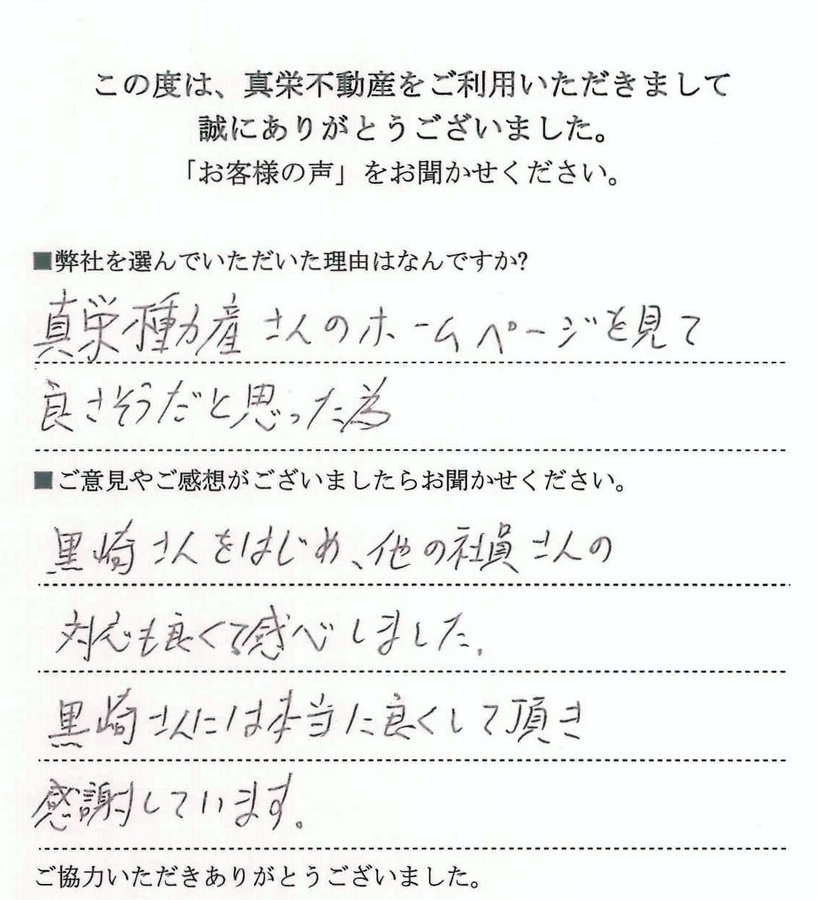 この度は、真栄不動産をご利用いただきまして
誠にありがとうございました。
「お客様の声」をお聞かせください。
■弊社を選んでいただいた理由はなんですか?
真栄不動産さんのホームページを見て
良さそうだと思った為
■ご意見やご感想がございましたらお聞かせください。
黒崎さんをはじめ、他の社員さんの
対応も良くて感心しました。
黒崎さんには本当に良くして頂き
感謝しています。
ご協力いただきありがとうございました。